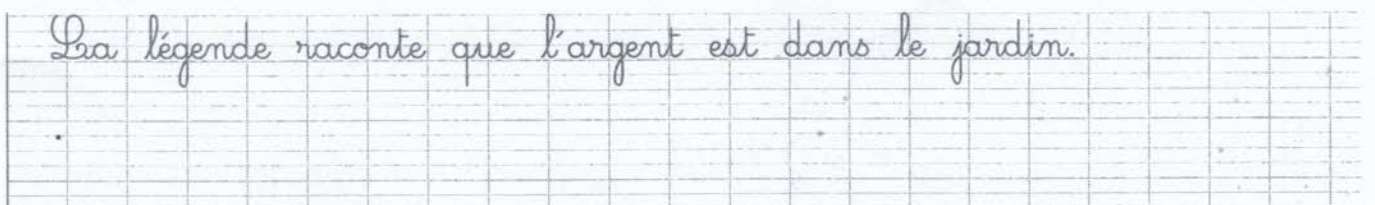 La légende raconte que l'argent est dans le jardin.